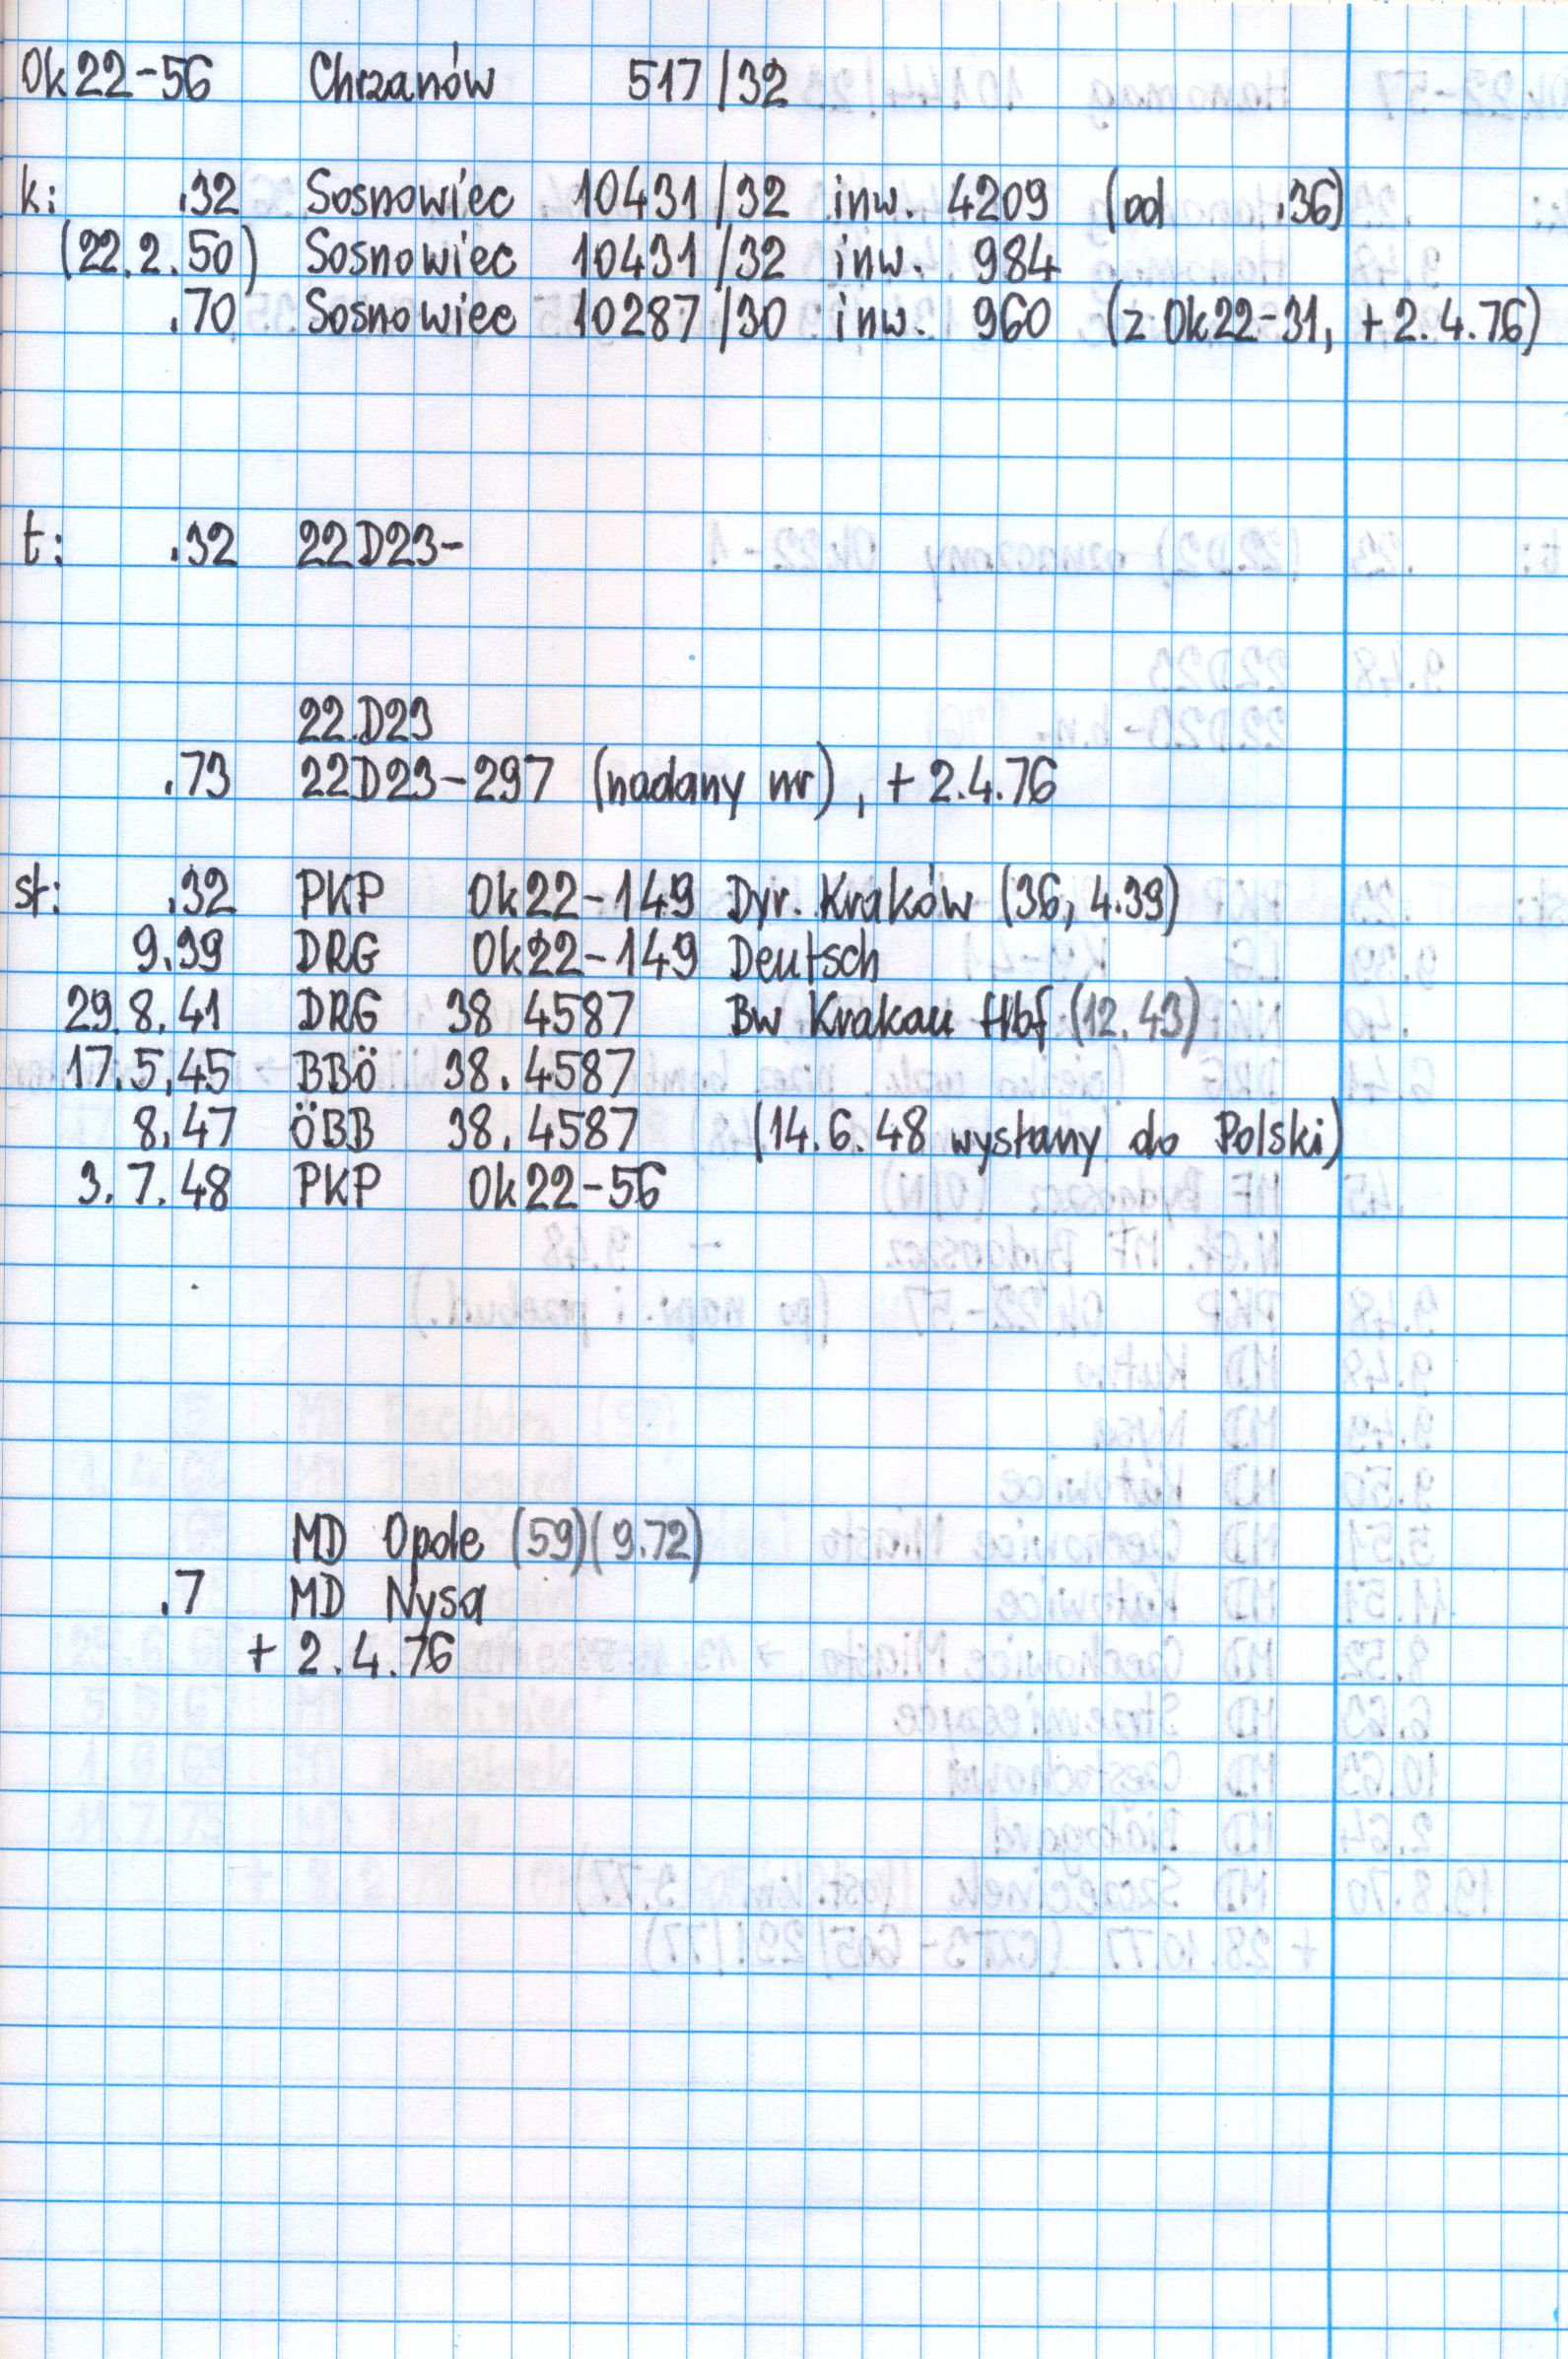 Ok22-56 Chrzanów 517/32
k: .32 Sosnowiec 10431/32 inw. 4209 (od .36)
(22.2.50) Sosnowiec 10431/32 inw. 984
.70 Sosnowiec 10287/30 inw. 960 (z Ok22-31, + 2.4.76)
t: .32 22D23-
22D23
.73 22D23-297 (nadany nr), + 2.4.76
st: .32 PKP Ok22-149 Dyr. Kraków (36, 4.39)
9.39 DRG Ok22-149 Deutsch
29.8.41 DRG 38 4587 Bw Krakau Hbf (12.43)
17.5.45 BBÖ 38.4587
8.47 ÖBB 38.4587 (14.6.48 wysłany do Polski)
3.7.48 PKP Ok22-56
MD Opole (59)(9.72)
.7 MD Nysa
+ 2.4.76